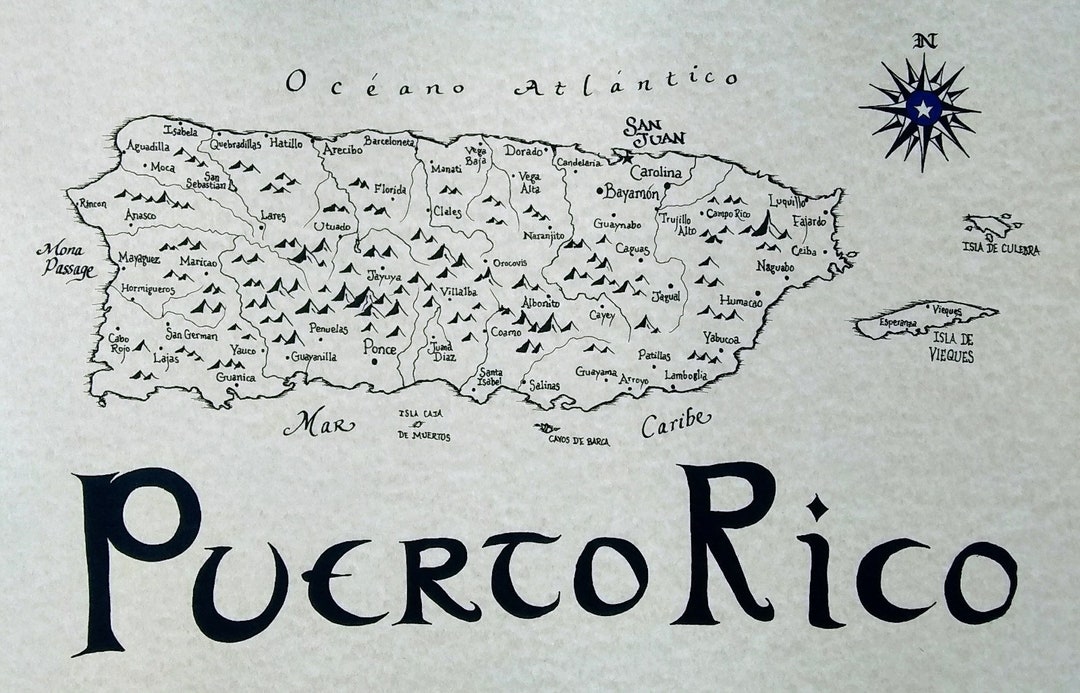 N
Océano Atlántico
SAN
JUAN
Isabela
Quebradillas
Hatillo
Arecibo
Barceloneta
Vega
Baja
Dorado
Candeleria
Carolina
Aguadilla
Moca
San
Sebastian
Manati
Vega
Alta
Bayamón
Florida
Rincon
Anasco
Lares
Utuado
Ciales
Naranjito
Guaynabo
Trujillo
Alto
Campo Rico
Luquillo
Fajardo
Ceiba
ISLA DE CULEBRA
Mona
Passage
Mayaguez
Maricao
Jayuya
Orocovis
Caguas
Naguabo
Hormigueros
Villalba
Albonito
Jagual
Humacao
Cabo
Rojo
San German
Penuelas
Coamo
Cayey
Yabucoa
Vieques
Esperanza
ISLA DE
VIEQUES
Lajas
Yauco
Guayanilla
Ponce
Juana
Diaz
Patillas
Guanica
Santa
Isabel
Salinas
Guayama
Arroyo
Lamboglia
Mar
Caribe
ISLA CAJA
DE MUERTOS
CAYOS DE BARCA
PUERTO RICO